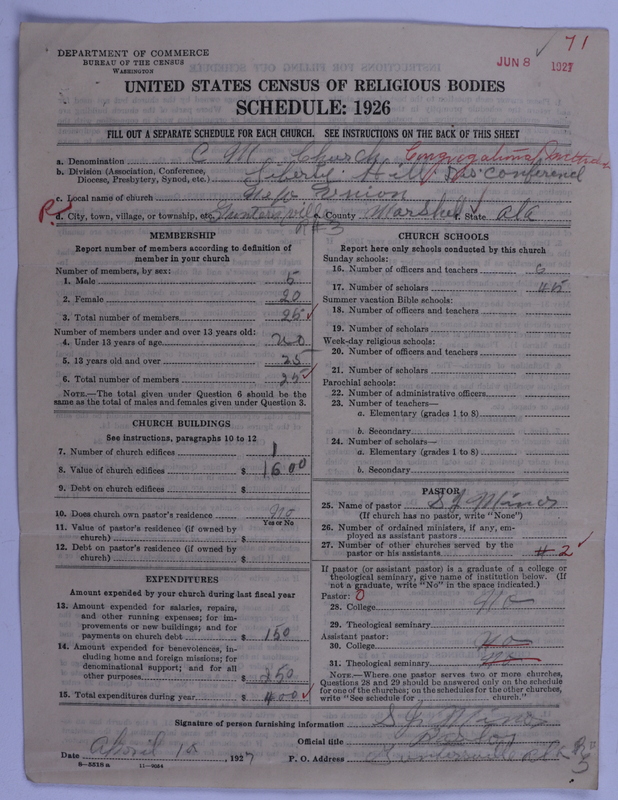 71
JUN 8 1927
DEPARTMENT OF COMMERCE
BUREAU OF THE CENSUS
WASHINGTON
UNITED STATES CENSUS OF RELIGIOUS BODIES
SCHEDULE: 1926
FILL OUT A SEPARATE SCHEDULE FOR EACH CHURCH. SEE INSTRUCTIONS ON THE BACK OF THIS SHEET
a. Denomination C M Church Congregational
b. Division (Association, Conference, Diocese, Presbytery, Synod, etc.) Liberty Hill conference
c. Local name of church New Union
R. d. City, town, village, or township, etc. Guntersville County Marshel State Ala
R#3
MEMBERSHIP
Report number of members according to definition of member in your church
Number of members, by sex:
1. Male 5
2. Female 20
3. Total number of members 25
Number of members under and over 13 years old:
4. Under 13 years of age no
5. 13 years old and over 25
6. Total number of members 25
NOTE.—The total given under Question 6 should be same as the total of males and females given under Question 3.
CHURCH BUILDINGS
See instructions, paragraphs 10 to 12
7. Number of church edifices 1
8. Value of church edifices $ 1600
9. Debt on church edifices $
10. Does church own pastor's residence no
Yes or No
11. Value of pastor's residence (if owned by church) $
12. Debt on pastor's residence (if owned by church) $
EXPENDITURES
Amount expended by your church during last fiscal year
13. Amount expended for salaries, repairs, and other running expenses; for improvements or new buildings; and for payments on church debt $ 150
14. Amount expended for benevolences, including home and foreign missions; for denominational support; and for all other purposes $ 250
15. Total expenditures during year $ 400
CHURCH SCHOOLS
Report here only schools conducted by this church
Sunday schools:
16. Number of officers and teachers 6
17. Number of scholars 45
Summer vacation Bible schools:
18. Number of officers and teachers
19. Number of scholars
Week-day religious schools:
20. Number of officers and teachers
21. Number of scholars
Parochial schools:
22. Number of administrative officers
23. Number of teachers—
a. Elementary (grades 1 to 8)
b. Secondary
24. Number of scholars—
a. Elementary (grades 1 to 8)
b. Secondary
PASTOR
25. Name of pastor
(If church has no pastor, write "None")
26. Number of ordained ministers, if any, employed as assistant pastors
27. Number of other churches served by the pastor or his assistants #2
If pastor (or assistant pastor) is a graduate of a college or theological seminary, give name of institution below. (If not a graduate, write "No" in the space indicated.)
Pastor: 0
28. College no
29. Theological seminary
Assistant pastor:
30. College no
31. Theological seminary no
NOTE.—Where one pastor serves two or more churches, Questions 28 and 29 should be answered only on the schedule for one of the churches; on the schedules for the other churches, write "See schedule for church."
Signature of person furnishing information
Official title Pastor
Date April 10, 1927 P. O. Address Guntersville Ala R 3
8—5518 a 11—9054